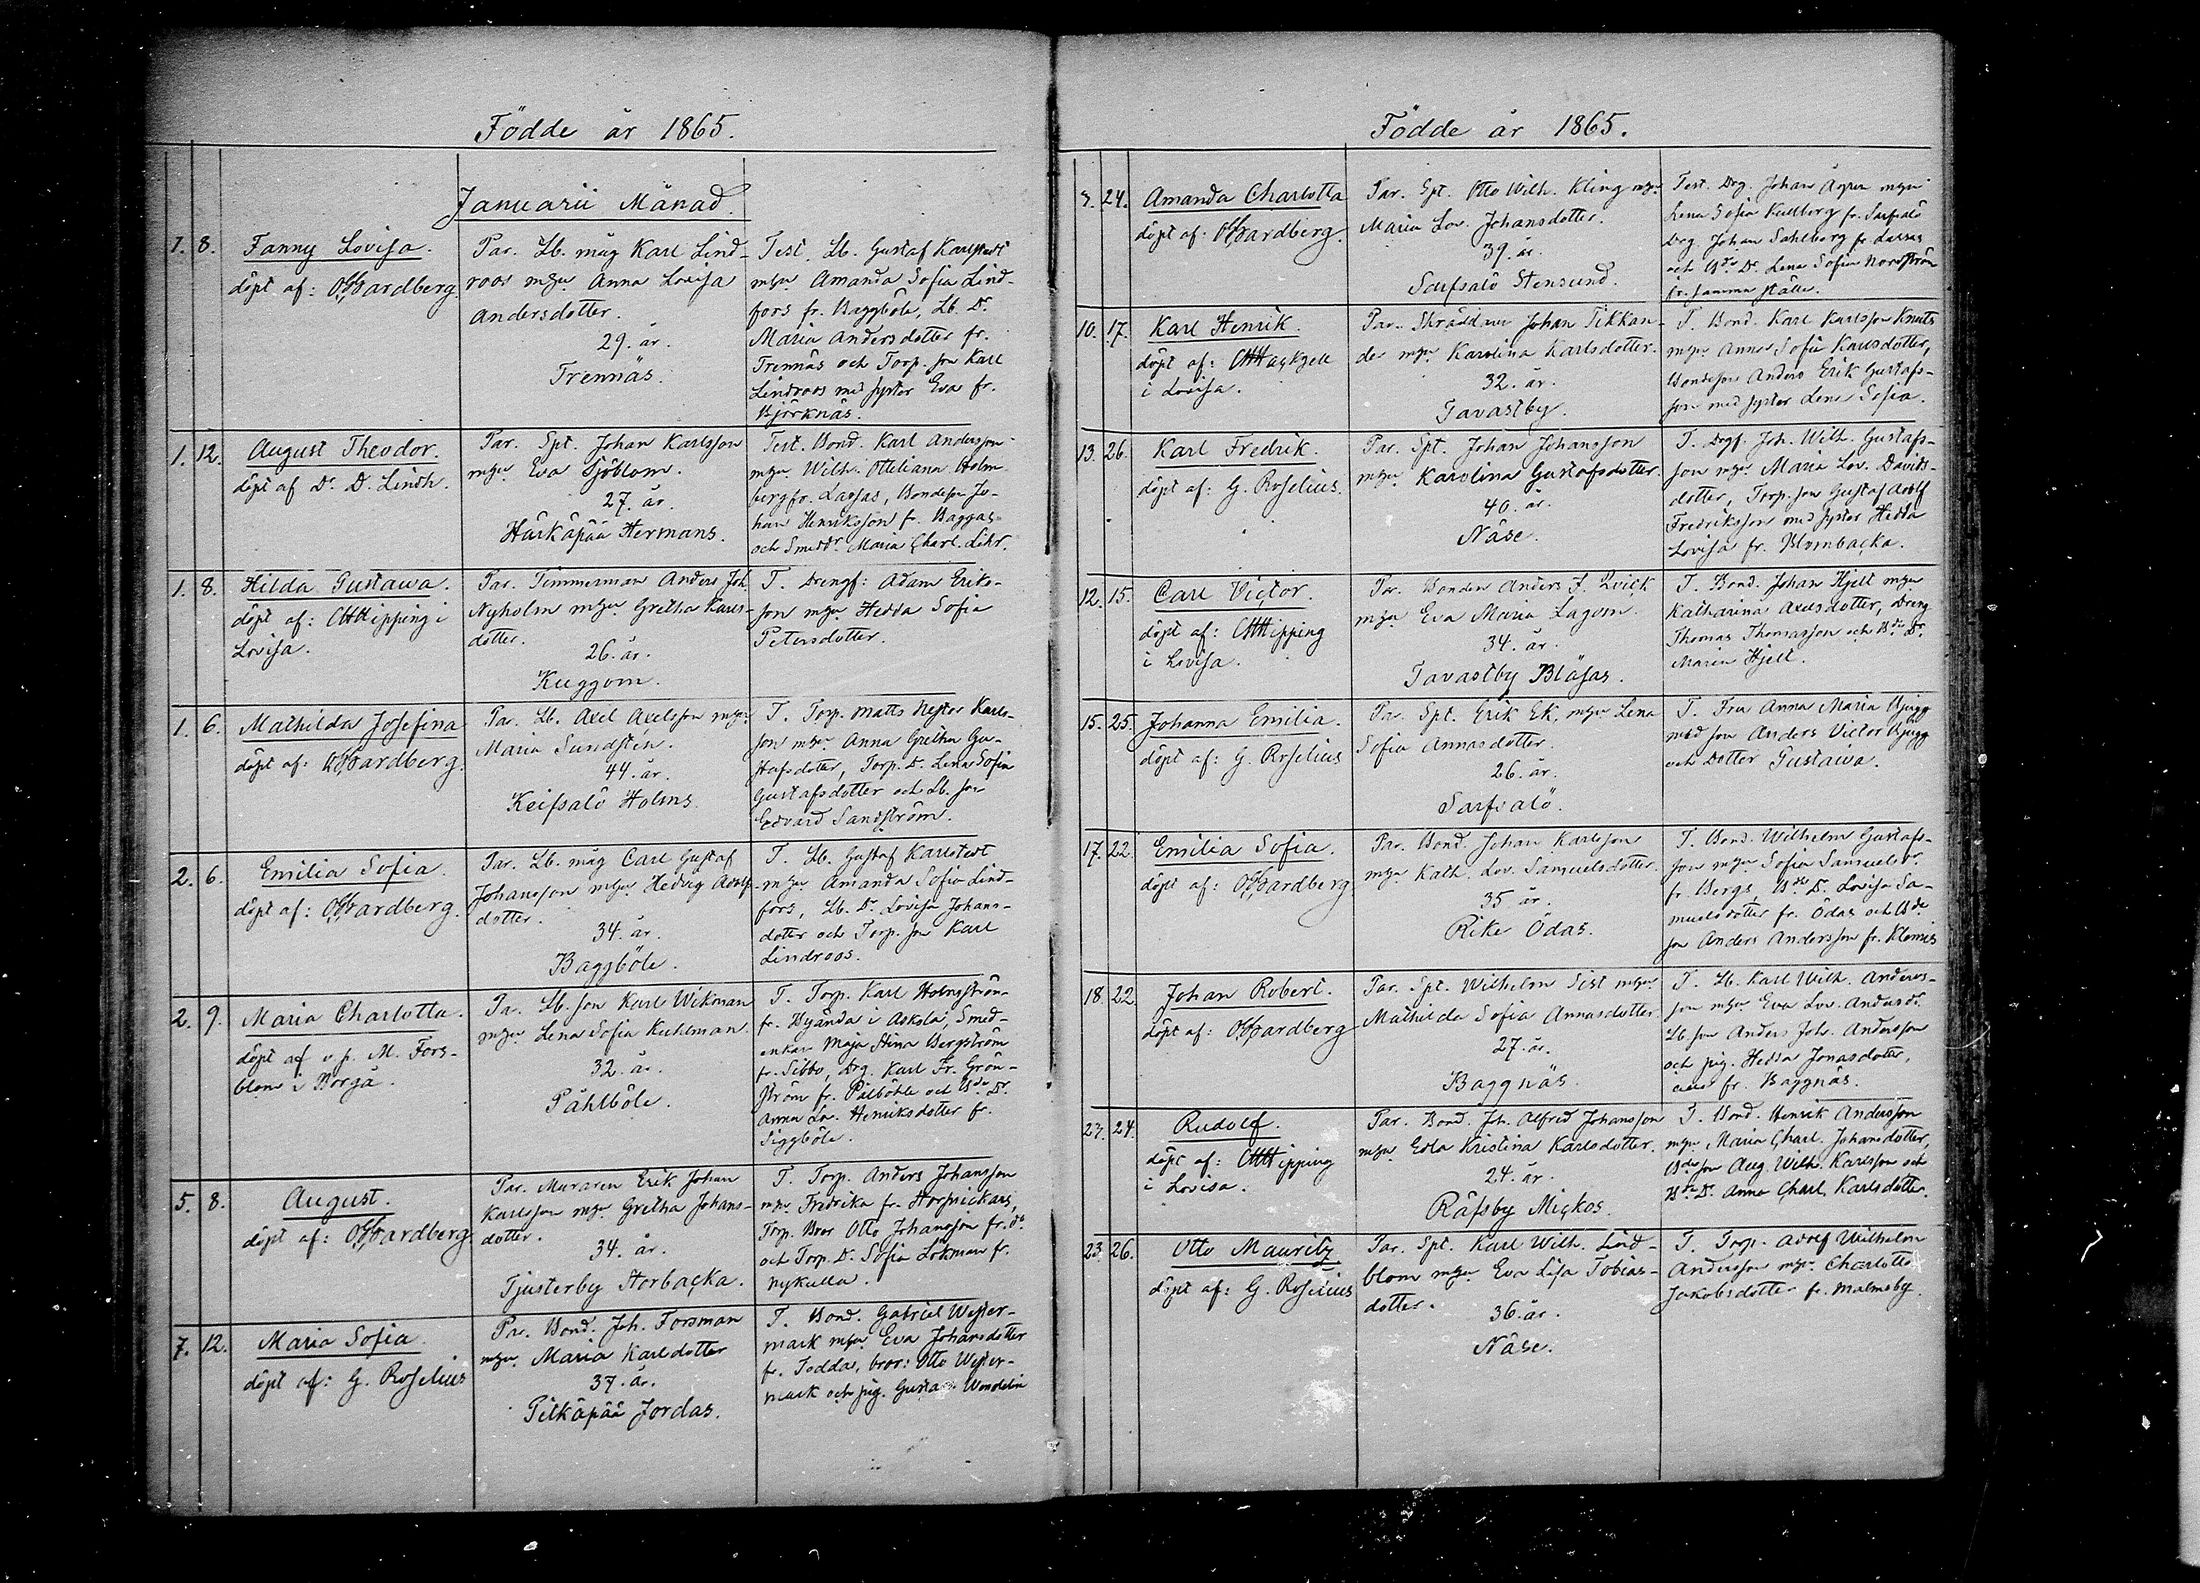 Födde år 1865.
Januarii Månad.
1. 8. Fanny Lovisa.
döpt af: Hardberg.
Par. Lb. måg Karl Lind-
roos m hu Anna Lovisa
Andersdotter.
29. år.
Trennäs.
Test. Lb. Gustaf Karlstedt
m hu Amanda Sofia Lind-
fors fr. Baggböle, Lb. Dr
Maria Andersdotter fr.
Trennäs och Torp. son Karl
Lindroos med syster Eva fr.
Björknäs.
1. 12. August Theodor.
döpt af Dr. D. Lindh.
Par. Spt. Johan Karlsson
m hu Eva Sjöblom.
27. år.
Härkäpää Hermans.
Test. Bond. Karl Andersson
m hu Wilh. Otteliana Holm
berg fr. Lassas, Bondeson Jo-
han Henriksson fr. Baggas
och Smeddr. Maria Charl. Lihr.
1. 8. Hilda Gustava.
döpt af: Hipping i
Lovisa.
Par. Timmerman Anders Joh.
Nyholm m hu Gretha Karls-
dotter.
26. år.
Kuggom.
T. Drengf: Adam Eriks-
son m hu Hedda Sofia
Petersdotter.
1. 6. Mathilda Josefina
döpt af: Hardberg.
Par. Lb. Axel Axelsson m hu
Maria Sundstén.
44. år.
Keifsalö Holms
T. Torp. Matts Nestor Karls-
son m hu Anna Gretha Gu-
stafsdotter, Torp. Dr. Lena Sofia
Gustafsdotter och Lb. son
Edvard Sandström.
2. 6. Emilia Sofia.
döpt af: Hardberg.
Par. Lb. måg Carl Gustaf
Johansson m hu Hedvig Adolfs-
dotter.
34. år.
Baggböle.
T. Lb. Gustaf Karlstedt
m hu Amanda Sofia Lind-
fors, Lb. Dr. Lovisa Johans-
dotter och Torp. son Karl
Lindroos.
2. 9. Maria Charlotta.
döpt af v. p. M. Fors-
blom i Borgå.
Pa. Lb. son Karl Wikman
m hu Lena Sofia Kuhlman.
32. år.
Påhlböle.
T. Torp. Karl Holmström
fr. i Askola, Smed-
enkan Maja Stina Bergström
fr. Sibbo, Drg. Karl Fr. Grön-
ström fr. Pålböhle och Bde Dr.
Anna Lov. Henriksdotter fr.
Siggböle.
5. 8. August.
döpt af: Hardberg
Par. Muraren Erik Johan
Karlsson m hu Gretha Johans-
dotter.
34. år.
Tjusterby Storbacka.
T. Torp. Anders Johansson
m hu Fredrika fr.
Torp. Bror Otto Johansson fr. do
och Torp. Dr. Sofia Lökman fr.
Nykulla.
7. 12. Maria Sofia.
döpt af: G. Roselius
Par. Bond. Joh. Forsman
m hu Maria Karlsdotter
37. år.
Pitkäpää Jordas.
T. Bond. Gabriel Wester-
mark m hu Eva Johansdotter
fr. Todda, bror: Otto Wester-
mark och pig. Gustava Wendelin
Födde år 1865.
24. Amanda Charlotta
döpt af: Hardberg.
Par. Spt. Otto Wilh. Kling m hu
Maria Lov. Johansdotter.
39. år.
Sarfsalö Stensund.
Test. Drg. Johan Ågren m hu
Lena Sofia Kullberg fr. Sarfsalö
Drg. Johan Sahlberg fr. Lassas
och Bde Dr. Lena Sofia Nordström
fr. samma ställe.
10. 17. Karl Henrik.
döpt af:
i Lovisa.
Par. Skräddaren Johan Tikkan-
der m hu Karolina Karlsdotter.
32. år.
Tavastby.
T. Bond. Karl Karlsson Knuts
m hu Anna Sofia Karlsdotter,
Bondeson Anders Erik Gustafs-
son med syster Lena Sofia.
13. 26. Karl Fredrik.
döpt af: G. Roselius.
Par. Spt. Johan Johansson
m hu Karolina Gustafsdotter.
40. år.
Näse.
T. Drgf. Joh. Wilh. Gustafs-
son m hu Maria Lov. Davids-
dotter, Torp. son Gustaf Adolf
Fredriksson med syster Hedda
Lovisa fr. Blombacka.
12. 15. Carl Victor.
döpt af: Hipping
i Lovisa.
Par. Bonden Anders J. Qvick
m hu Eva Maria Lagom.
34. år.
Tavastby Blåsas.
T. Bond. Johan Hjelt m hu
Katharina Axelsdotter, Dreng
Thomas Thomasson och Bde Dr.
Maria Hjelt.
15. 25. Johanna Emilia.
döpt af: G. Roselius
Par. Spt. Erik Ek, m hu Lena
Sofia Annasdotter.
26. år.
Sarfsalö.
T. Fru Anna Maria Bjugg
med son Anders Victor Bjugg
och Dotter Gustava.
17. 22. Emilia Sofia.
döpt af: Hardberg
Par. Bond. Johan Karlsson
m hu Kath. Lov. Samuelsdotter.
35. år.
Rike Ödas.
T. Bond. Wilhelm Gustafs-
son m hu Sofia Samuelsdr.
fr. Bergs, Bde Dr. Lovisa Sa-
muelsdotter fr. Ödas och Bde
son Anders Andersson fr. Klemis
18. 22. Johan Robert.
döpt af: Hardberg
Par. Spt. Wilhelm Sist m hu
Mathilda Sofia Annasdotter
27. år.
Baggnäs.
T. Lb. Karl Wilh. Anders-
son m hu Eva Lov. Andersdr.
Lb son Anders Joh. Andersson
och pig. Hedda Jonasdotter,
alla fr. Baggnäs.
23. 24. Rudolf.
döpt af: Hipping
i Lovisa.
Par. Bond. Joh. Alfred Johansson
m hu Edla Kristina Karlsdotter.
24. år.
Räfsby Mickos.
T. Bond. Henrik Andersson
m hu Maria Charl. Johansdotter,
Bde son Aug. Wilh. Karlsson och
Bde Dr. Anna Charl. Karlsdotter.
23. 26. Otto Mauritz
döpt af: G. Roselius
Par. Spt. Karl Wilh. Lind-
blom m hu Eva Lisa Tobias-
dotter.
36. år.
Näse.
T. Torp. Adolf Wilhelm
Andersson m hu Charlotta
Jakobsdotter fr. Malmsby.